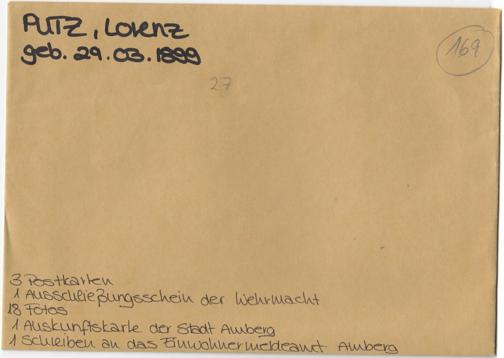 PUTZ, Lorenz
geb. 29.03.1899
169
27
3 Postkarten
1 Ausschließungsschein der Wehrmacht
18 Fotos
1 Auskunftskarte der Stadt Amberg
1 Schreiben an das Einwohnermeldeamt Amberg